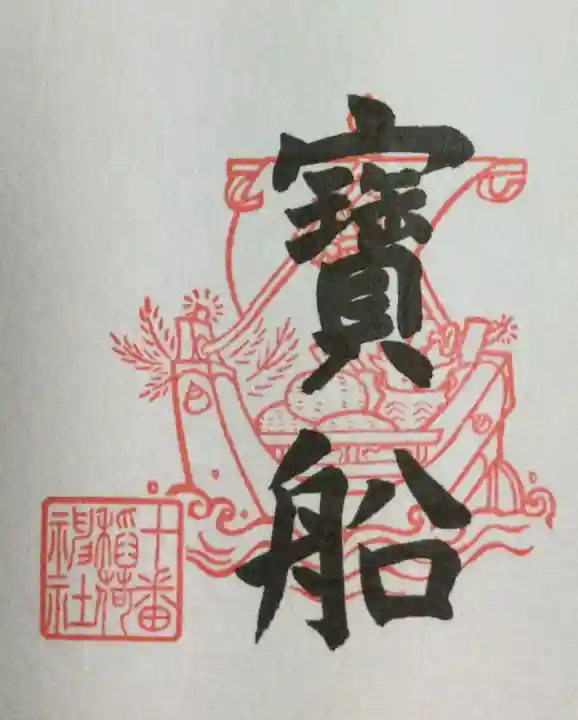 寶船
十番
稲荷
神社